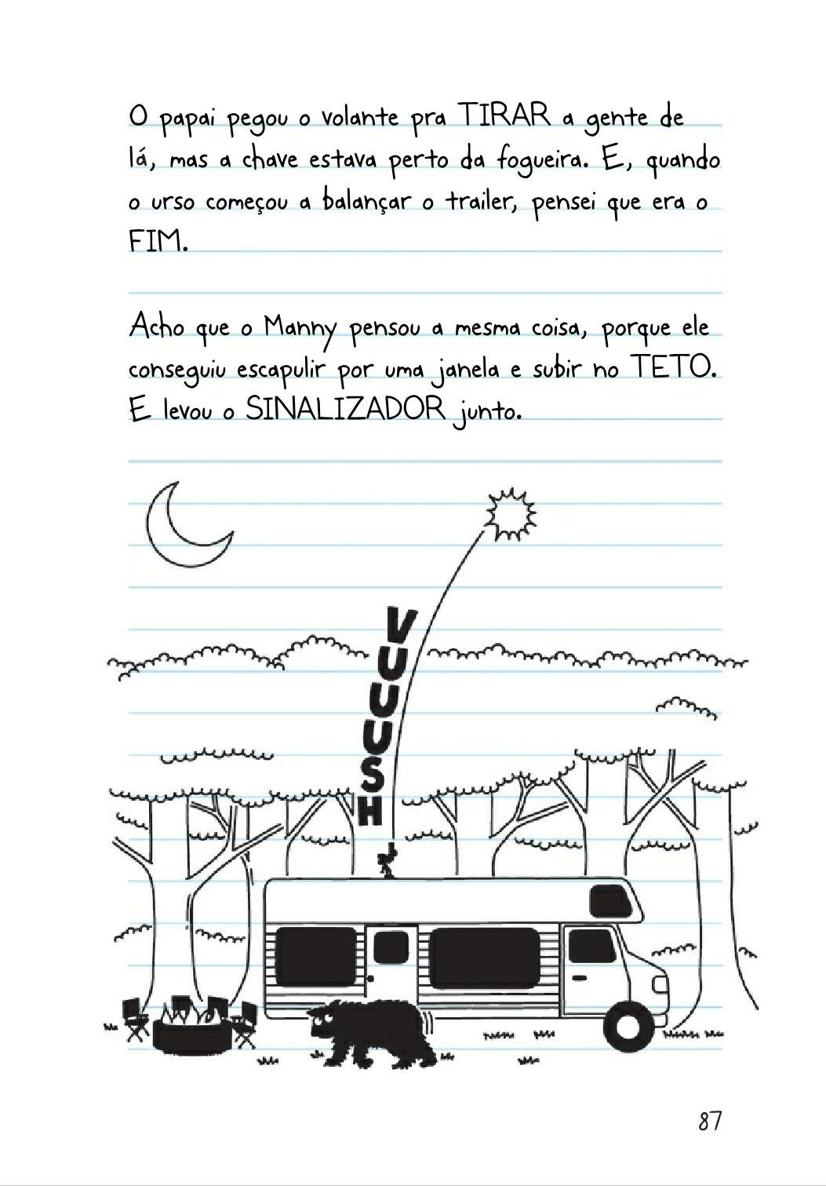 O papai pegou o volante pra TIRAR a gente de
lá, mas a chave estava perto da fogueira. E, quando
o urso começou a balançar o trailer, pensei que era o
FIM.
Acho que o Manny pensou a mesma coisa, porque ele
conseguiu escapulir por uma janela e subir no TETO.
E levou o SINALIZADOR junto.
VUUUSH
87